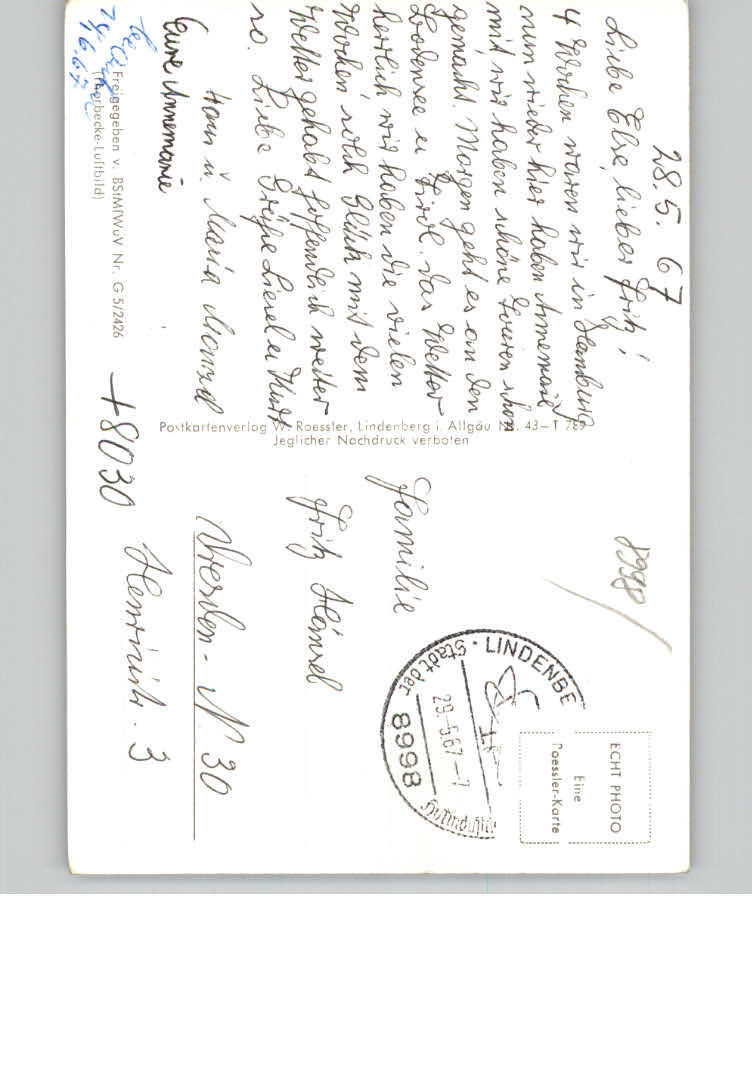 28.5.67
Liebe Else, lieber Fritz!
4 Wochen waren wir in Hamburg
nun wieder hier haben Annemarie
mit, wir haben schöne Touren schon
gemacht. Morgen geht es an den
Bodensee u Tirol. Das Wetter
herrlich wir haben die vielen
Wochen solch Glück mit dem
Wetter gehabt hoffendlich weiter
so. Liebe Grüße Liesel u Kurt
Hans u. Maria
Eure Annemarie
Freigegeben v. BStMfWuV Nr. G 5/2426
(Thorbecke-Luftbild)
16.67
Postkartenverlag W. Roessler, Lindenberg i. Allgäu Nr. 43–T 789
Jeglicher Nachdruck verboten
ECHT PHOTO
Eine
Roessler-Karte
LINDENBE
29.-5.67-7
8998
Stadt der
Hutindustrie
8998
Familie
Fritz Hänsel
Dresden-N 30
+8030
3